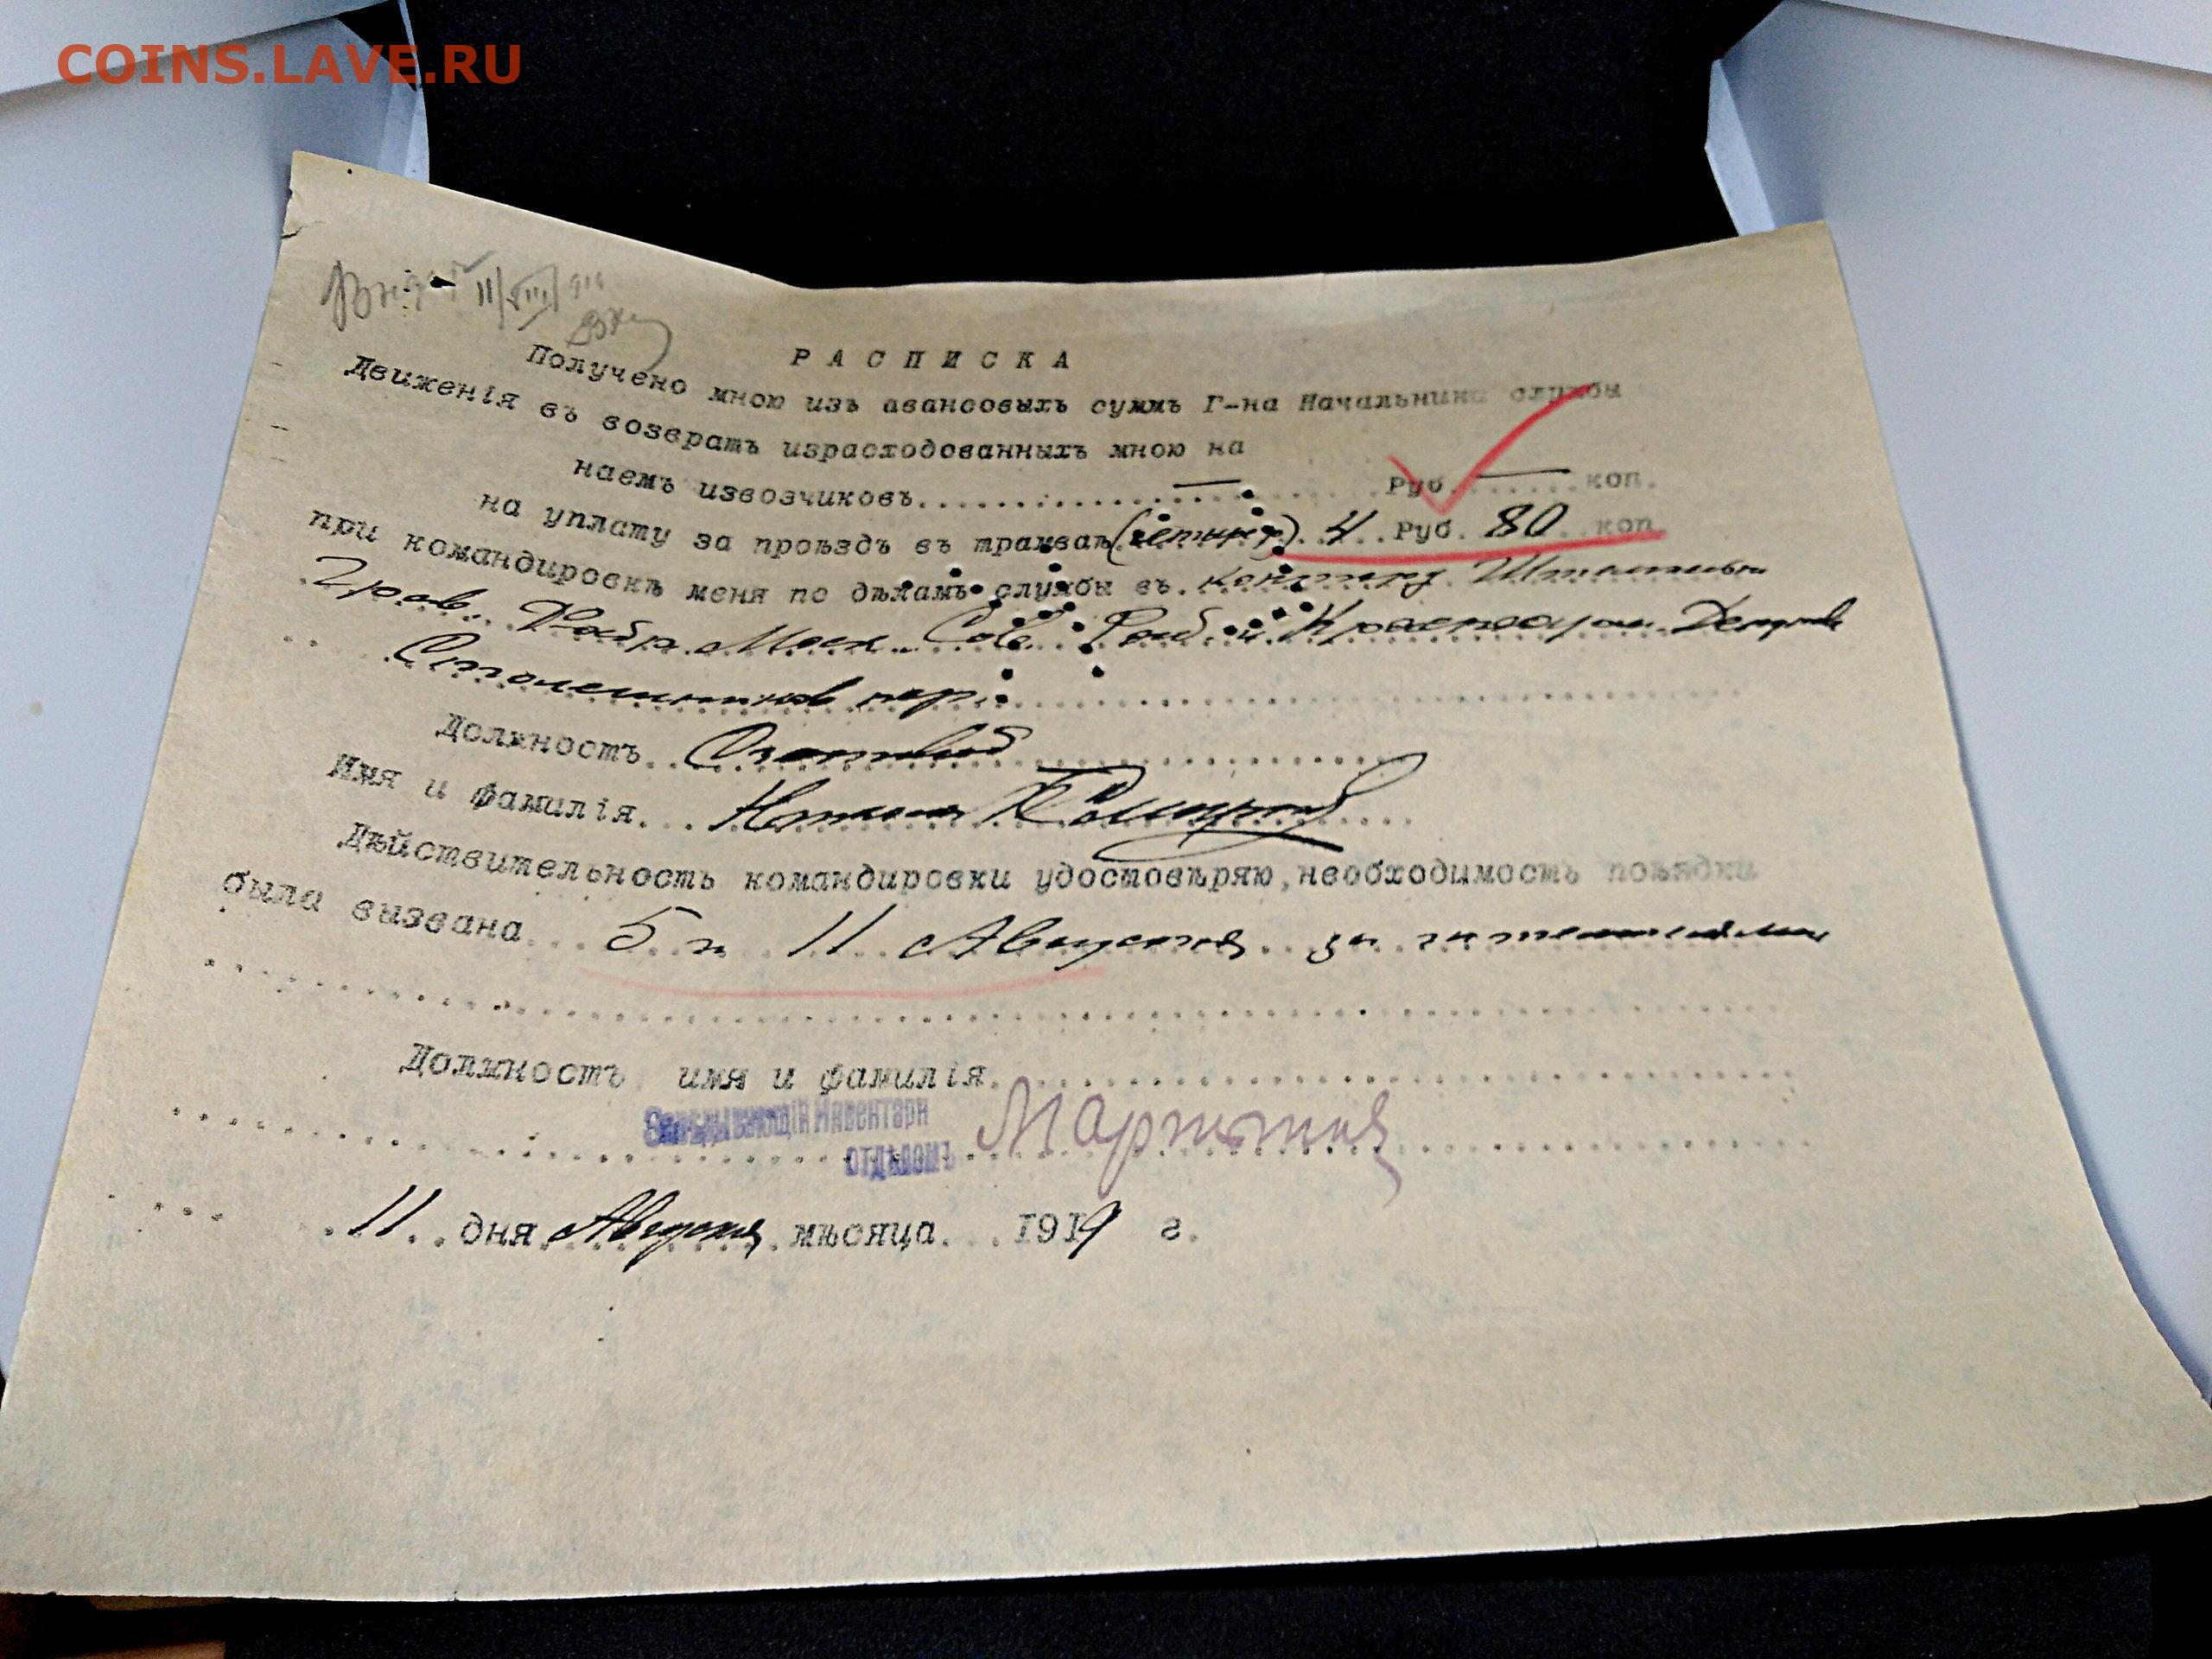 COINS.LAVE.RU
11/VIII
РАСПИСКА
Получено мною изъ авансовыхъ суммъ Г-на Начальника службы
Движенія въ возвратъ израсходованныхъ мною на
наемъ извозчиковъ — Руб. — коп.
на уплату за проѣздъ въ трамваѣ 4 Руб. 80 коп.
при командировкѣ меня по дѣламъ службы въ
Моск. Сов. Раб. и
Столешников пер.
Должность
Имя и фамилія
Дѣйствительность командировки удостовѣряю, необходимость поѣздки
была вызвана 5 и 11 Августа за
Должность имя и фамилія
Завѣдывающій Инвентарн
отдѣломъ
11 дня Августа мѣсяца 1919 г.